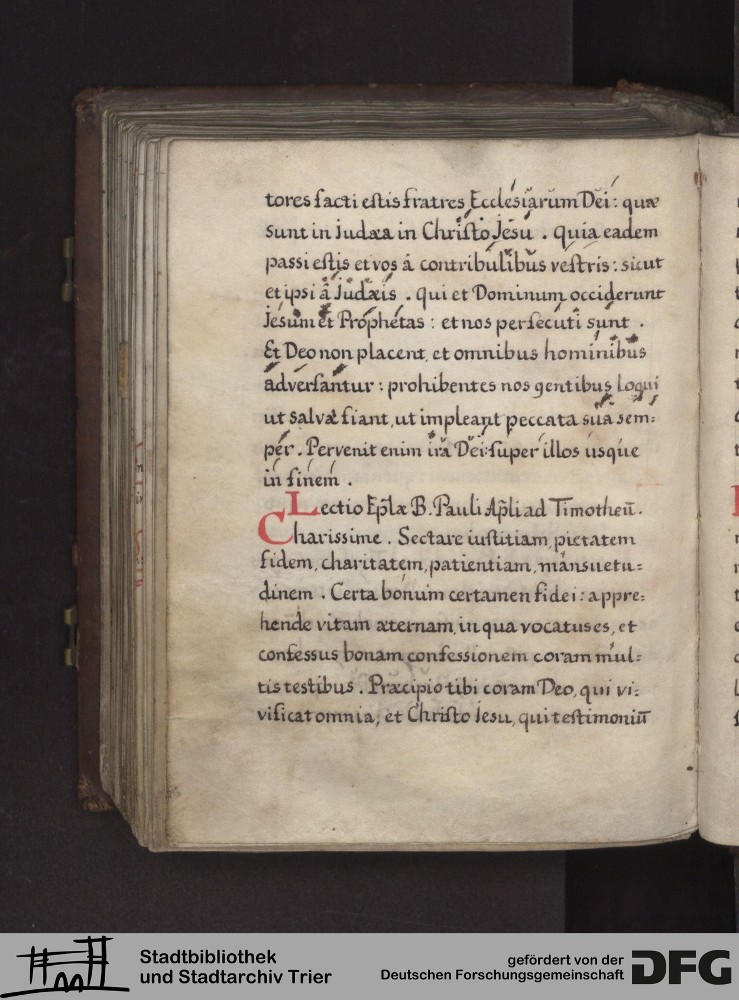 tores facti estis fratres Ecclesiarum Dei : quæ
sunt in Judæa in Christo Jesu . quia eadem
passi estis et vos á contribulibus vestris : sicut
et ipsi â Judæis . qui et Dominum occiderunt
Jesum et Prophetas : et nos persecuti sunt .
Et Deo non placent, et omnibus hominibus
adversantur : prohibentes nos gentibus loqui
ut salvæ fiant, ut impleant peccata sua sem=
per . Pervenit enim ira Dei super illos usque
in finem .
Lectio Ep̃læ B. Pauli Ap̃li ad Timotheū .
Charissime . Sectare iustitiam, pietatem
fidem, charitatem, patientiam, mansuetu=
dinem . Certa bonum certamen fidei : appre=
hende vitam æternam, in qua vocatus es, et
confessus bonam confessionem coram mul=
tis testibus . Præcipio tibi coram Deo, qui vi=
vificat omnia, et Christo Jesu, qui testimoniū
Stadtbibliothek
und Stadtarchiv Trier
gefördert von der
Deutschen Forschungsgemeinschaft
DFG